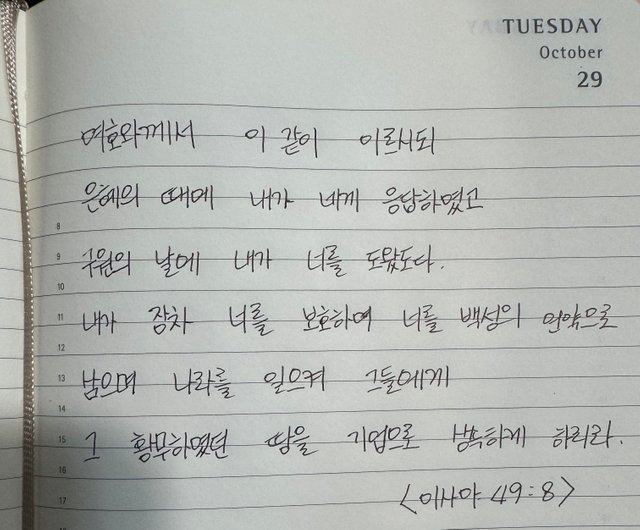 TUESDAY
October
29
여호와께서 이 같이 이르시되
은혜의 때에 내가 네게 응답하였고
8
구원의 날에 내가 너를 도왔도다.
9
10
내가 장차 너를 보호하며 너를 백성의 언약으로
11
12
삼으며 나라를 일으켜 그들에게
13
14
그 황무하였던 땅을 기업으로 상속하게 하리라.
15
16
<이사야 49:8>
17